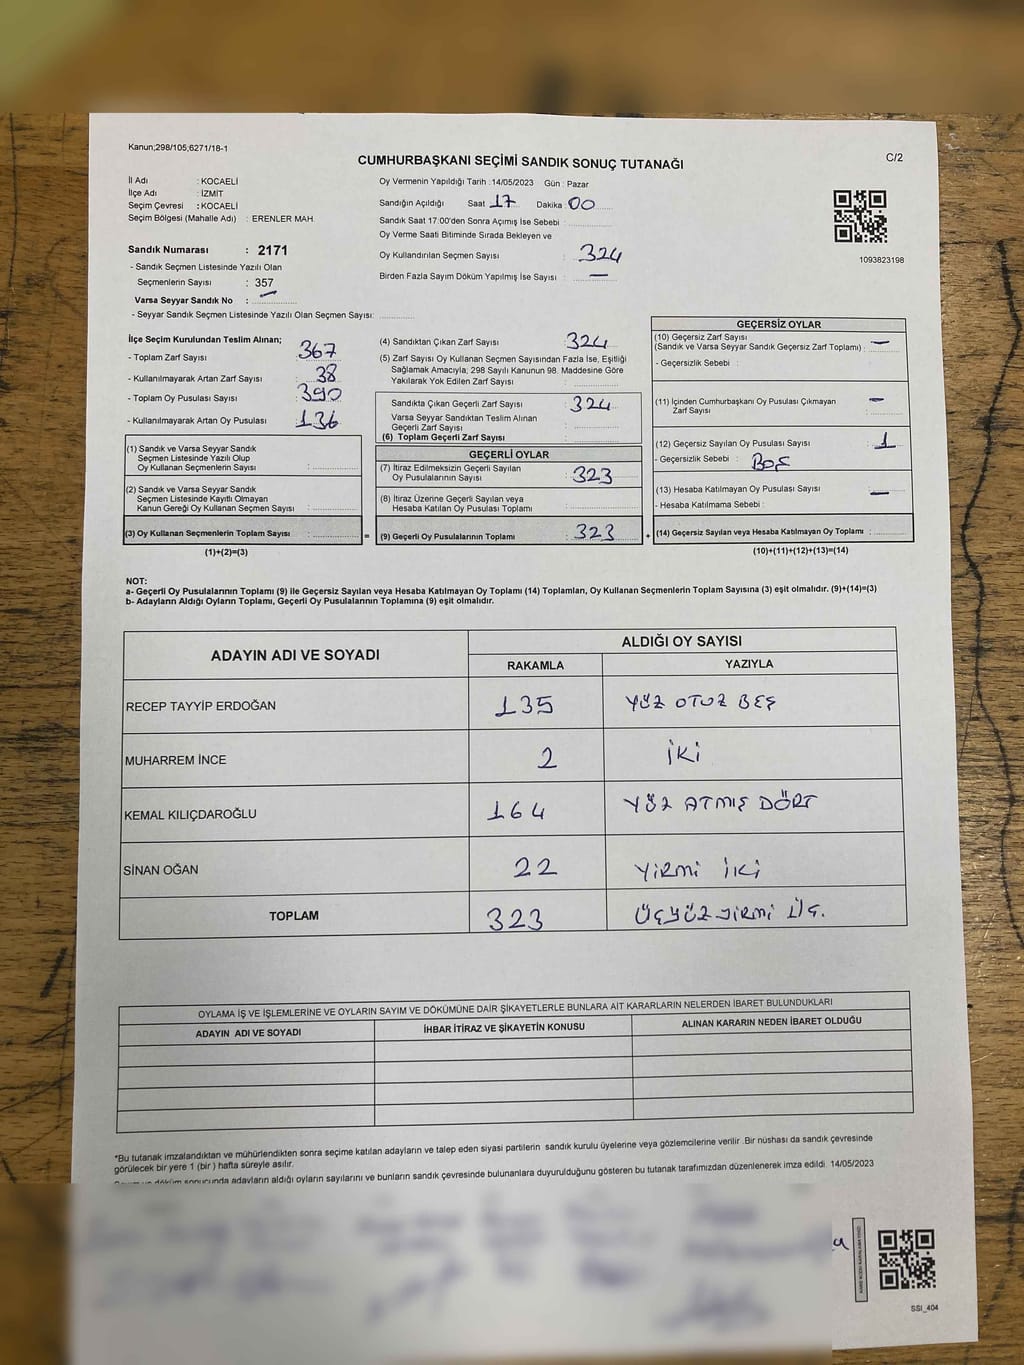 Kanun;298/105;6271/18-1
CUMHURBAŞKANI SEÇİMİ SANDIK SONUÇ TUTANAĞI
C/2
İl Adı : KOCAELİ
İlçe Adı : İZMİT
Seçim Çevresi : KOCAELİ
Seçim Bölgesi (Mahalle Adı) : ERENLER MAH.
Oy Vermenin Yapıldığı Tarih :14/05/2023 Gün : Pazar
Sandığın Açıldığı Saat 17 Dakika 00
Sandık Saat 17:00'den Sonra Açımış İse Sebebi :
Oy Verme Saati Bitiminde Sırada Bekleyen ve
Oy Kullandırılan Seçmen Sayısı : 324
Birden Fazla Sayım Döküm Yapılmış İse Sayısı : —
1093823198
Sandık Numarası : 2171
- Sandık Seçmen Listesinde Yazılı Olan
Seçmenlerin Sayısı : 357
Varsa Seyyar Sandık No : —
- Seyyar Sandık Seçmen Listesinde Yazılı Olan Seçmen Sayısı:
İlçe Seçim Kurulundan Teslim Alınan;
- Toplam Zarf Sayısı : 367
- Kullanılmayarak Artan Zarf Sayısı : 38
- Toplam Oy Pusulası Sayısı : 390
- Kullanılmayarak Artan Oy Pusulası : 136
(1) Sandık ve Varsa Seyyar Sandık
Seçmen Listesinde Yazılı Olup
Oy Kullanan Seçmenlerin Sayısı :
(2) Sandık ve Varsa Seyyar Sandık
Seçmen Listesinde Kayıtlı Olmayan
Kanun Gereği Oy Kullanan Seçmen Sayısı :
(3) Oy Kullanan Seçmenlerin Toplam Sayısı :
(1)+(2)=(3)
(4) Sandıktan Çıkan Zarf Sayısı : 324
(5) Zarf Sayısı Oy Kullanan Seçmen Sayısından Fazla İse, Eşitliği
Sağlamak Amacıyla, 298 Sayılı Kanunun 98. Maddesine Göre
Yakılarak Yok Edilen Zarf Sayısı :
Sandıkta Çıkan Geçerli Zarf Sayısı : 324
Varsa Seyyar Sandıktan Teslim Alınan
Geçerli Zarf Sayısı :
(6) Toplam Geçerli Zarf Sayısı :
GEÇERLİ OYLAR
(7) İtiraz Edilmeksizin Geçerli Sayılan
Oy Pusulalarının Sayısı : 323
(8) İtiraz Üzerine Geçerli Sayılan veya
Hesaba Katılan Oy Pusulası Toplamı :
= (9) Geçerli Oy Pusulalarının Toplamı : 323 +
GEÇERSİZ OYLAR
(10) Geçersiz Zarf Sayısı
(Sandık ve Varsa Seyyar Sandık Geçersiz Zarf Toplamı) : —
- Geçersizlik Sebebi :
(11) İçinden Cumhurbaşkanı Oy Pusulası Çıkmayan
Zarf Sayısı : —
(12) Geçersiz Sayılan Oy Pusulası Sayısı : 1
- Geçersizlik Sebebi : BOŞ
(13) Hesaba Katılmayan Oy Pusulası Sayısı : —
- Hesaba Katılmama Sebebi :
(14) Geçersiz Sayılan veya Hesaba Katılmayan Oy Toplamı :
(10)+(11)+(12)+(13)=(14)
NOT:
a- Geçerli Oy Pusulalarının Toplamı (9) ile Geçersiz Sayılan veya Hesaba Katılmayan Oy Toplamı (14) Toplamları, Oy Kullanan Seçmenlerin Toplam Sayısına (3) eşit olmalıdır. (9)+(14)=(3)
b- Adayların Aldığı Oyların Toplamı, Geçerli Oy Pusulalarının Toplamına (9) eşit olmalıdır.
ADAYIN ADI VE SOYADI
ALDIĞI OY SAYISI
RAKAMLA YAZIYLA
RECEP TAYYİP ERDOĞAN 135 YÜZ OTUZ BEŞ
MUHARREM İNCE 2 İKİ
KEMAL KILIÇDAROĞLU 164 YÜZ ATMIŞ DÖRT
SİNAN OĞAN 22 YİRMİ İKİ
TOPLAM 323 ÜÇYÜZ YİRMİ ÜÇ.
OYLAMA İŞ VE İŞLEMLERİNE VE OYLARIN SAYIM VE DÖKÜMÜNE DAİR ŞİKAYETLERLE BUNLARA AİT KARARLARIN NELERDEN İBARET BULUNDUKLARI
ADAYIN ADI VE SOYADI İHBAR İTİRAZ VE ŞİKAYETİN KONUSU ALINAN KARARIN NEDEN İBARET OLDUĞU
*Bu tutanak imzalandıktan ve mühürlendikten sonra seçime katılan adayların ve talep eden siyasi partilerin sandık kurulu üyelerine veya gözlemcilerine verilir .Bir nüshası da sandık çevresinde
görülecek bir yere 1 (bir ) hafta süreyle asılır.
sonucunda adayların aldığı oyların sayılarını ve bunların sandık çevresinde bulunanlara duyurulduğunu gösteren bu tutanak tarafımızdan düzenlenerek imza edildi. 14/05/2023
SSI_404